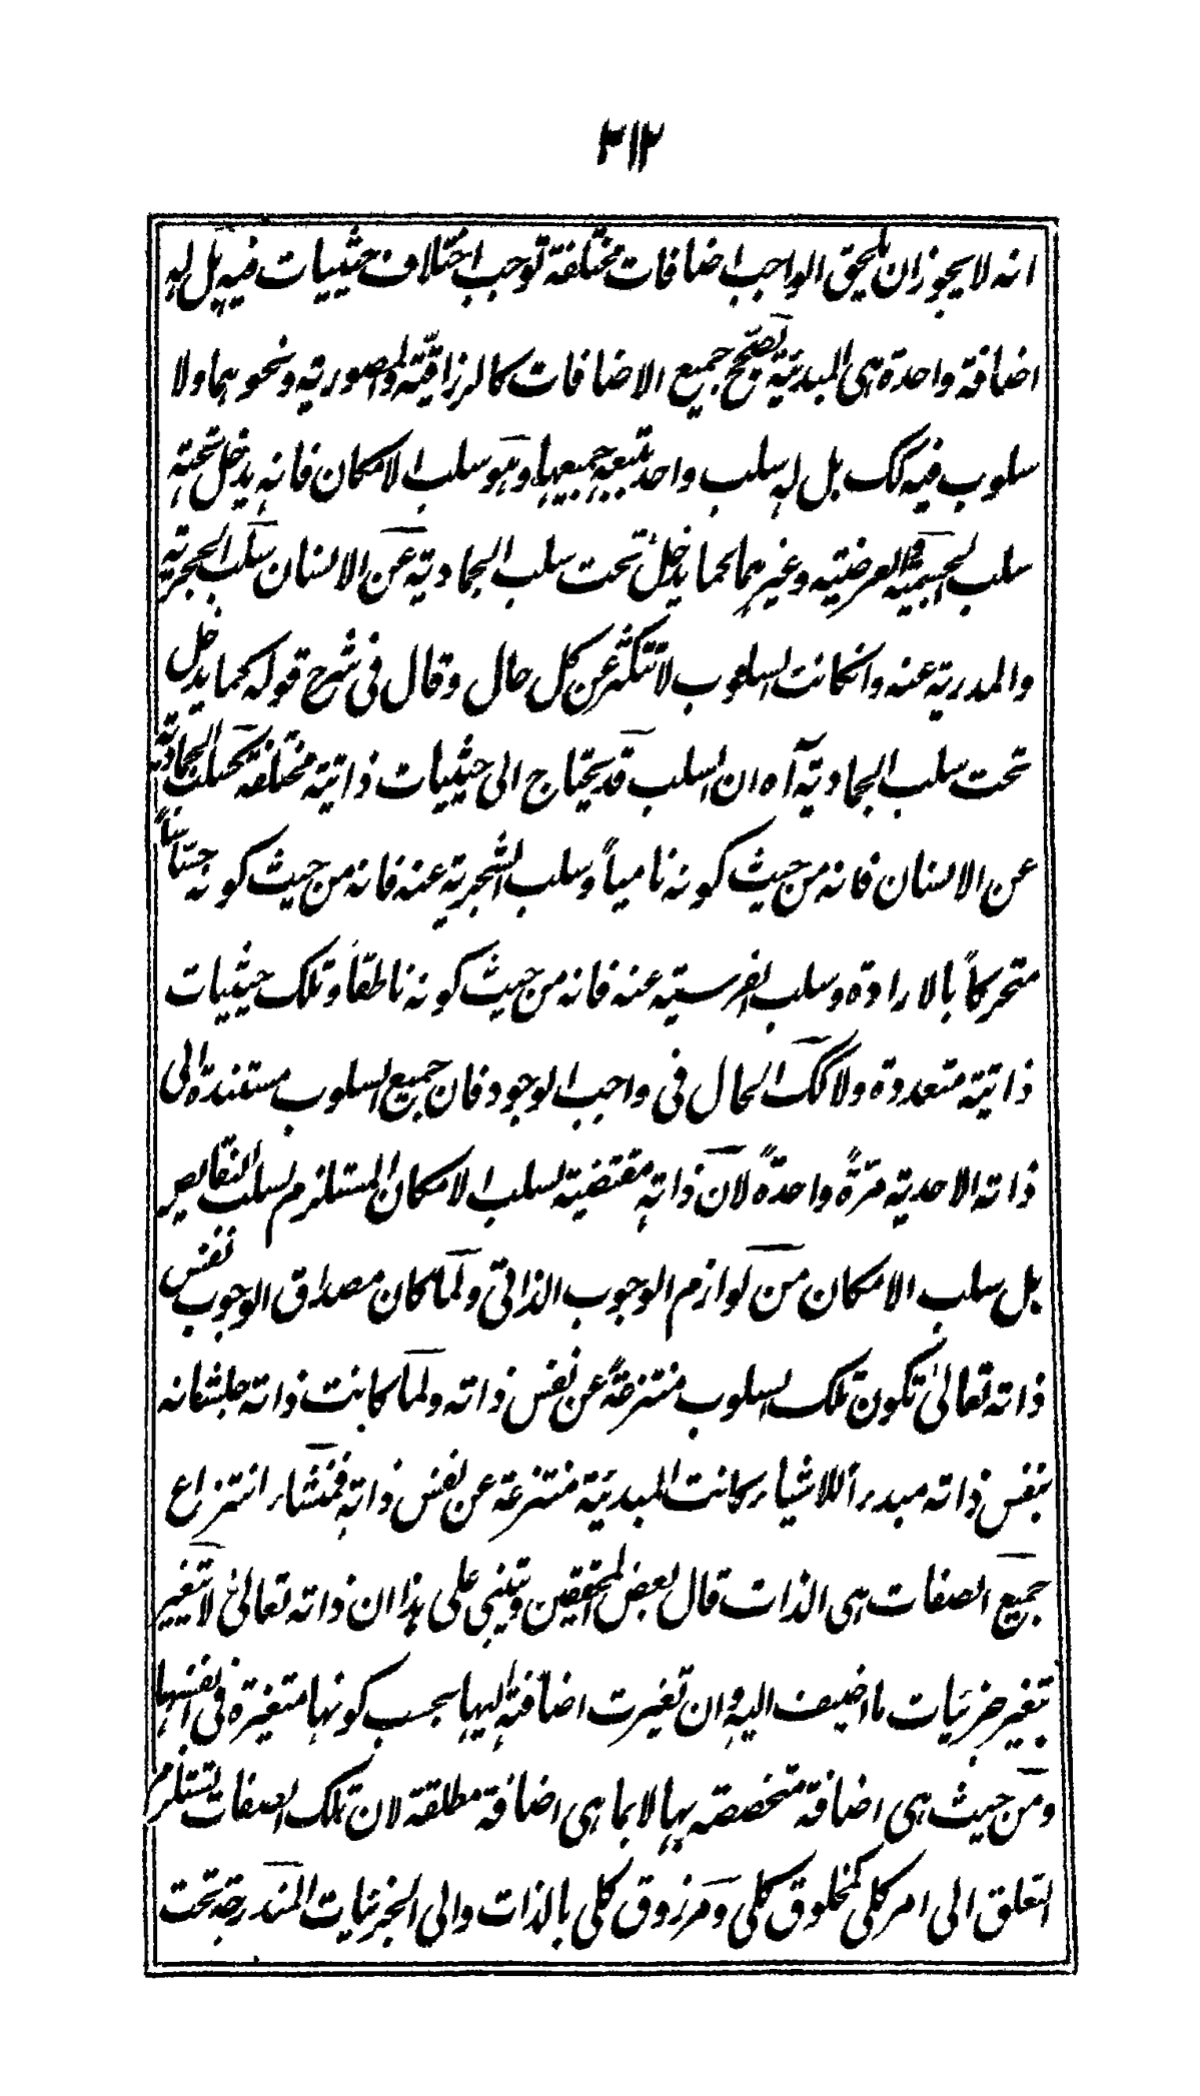 ٣١٢
انه لا يجوز ان يلحق الواجب اضافات مختلفة توجب اختلاف حيثيات فيه بل له
اضافة واحدة هى المبدئية تصحح جميع الاضافات كالرازقية والمصورية ونحوهما ولا
سلوب فيه كك بل له سلب واحد يتبعه جميعها وهو سلب الامكان فانه يدخل تحته
سلب الجسمية والعرضية وغيرهما كما يدخل تحت سلب الجمادية عن الانسان سلب الحجرية
والمدرية عنه وانكانت السلوب لا تتكثر عن كل حال وقال فى شرح قوله كما يدخل
تحت سلب الجمادية آه ان السلب قد يحتاج الى حيثيات ذاتية مختلفة كسلب الجمادية
عن الانسان فانه من حيث كونه نامياً وسلب الشجرية عنه فانه من حيث كونه حساساً
متحركاً بالارادة وسلب الفرسية عنه فانه من حيث كونه ناطقاً وتلك حيثيات
ذاتية متعددة ولا كك الحال فى واجب الوجود فان جميع السلوب مستندة الى
ذاته الاحدية مرّةً واحدةً لان ذاته مقتضية لسلب الامكان المستلزم لسلب النقايص
بل سلب الامكان من لوازم الوجوب الذاتى ولما كان مصداق الوجوب نفس
ذاته تعالىٰ تكون تلك السلوب منتزعةً عن نفس ذاته ولما كانت ذاته جلشانه
بنفس ذاته مبدءاً للاشياء كانت المبدئية منتزعة عن نفس ذاته فمنشاء انتزاع
جميع الصفات هى الذات قال بعض المحققين ويبتنى على هذا ان ذاته تعالىٰ لا تتغير
بتغير جزئيات ما اضيف اليه وان تغيرت اضافته اليها بحسب كونها متغيرة فى انفسها
ومن حيث هى اضافة متخصصة بها لا بما هى اضافة مطلقة لان تلك الصفات تستلزم
التعلق الى امر كلى كمخلوق كلى ومرزوق كلى بالذات والى الجزئيات المندرجة تحت